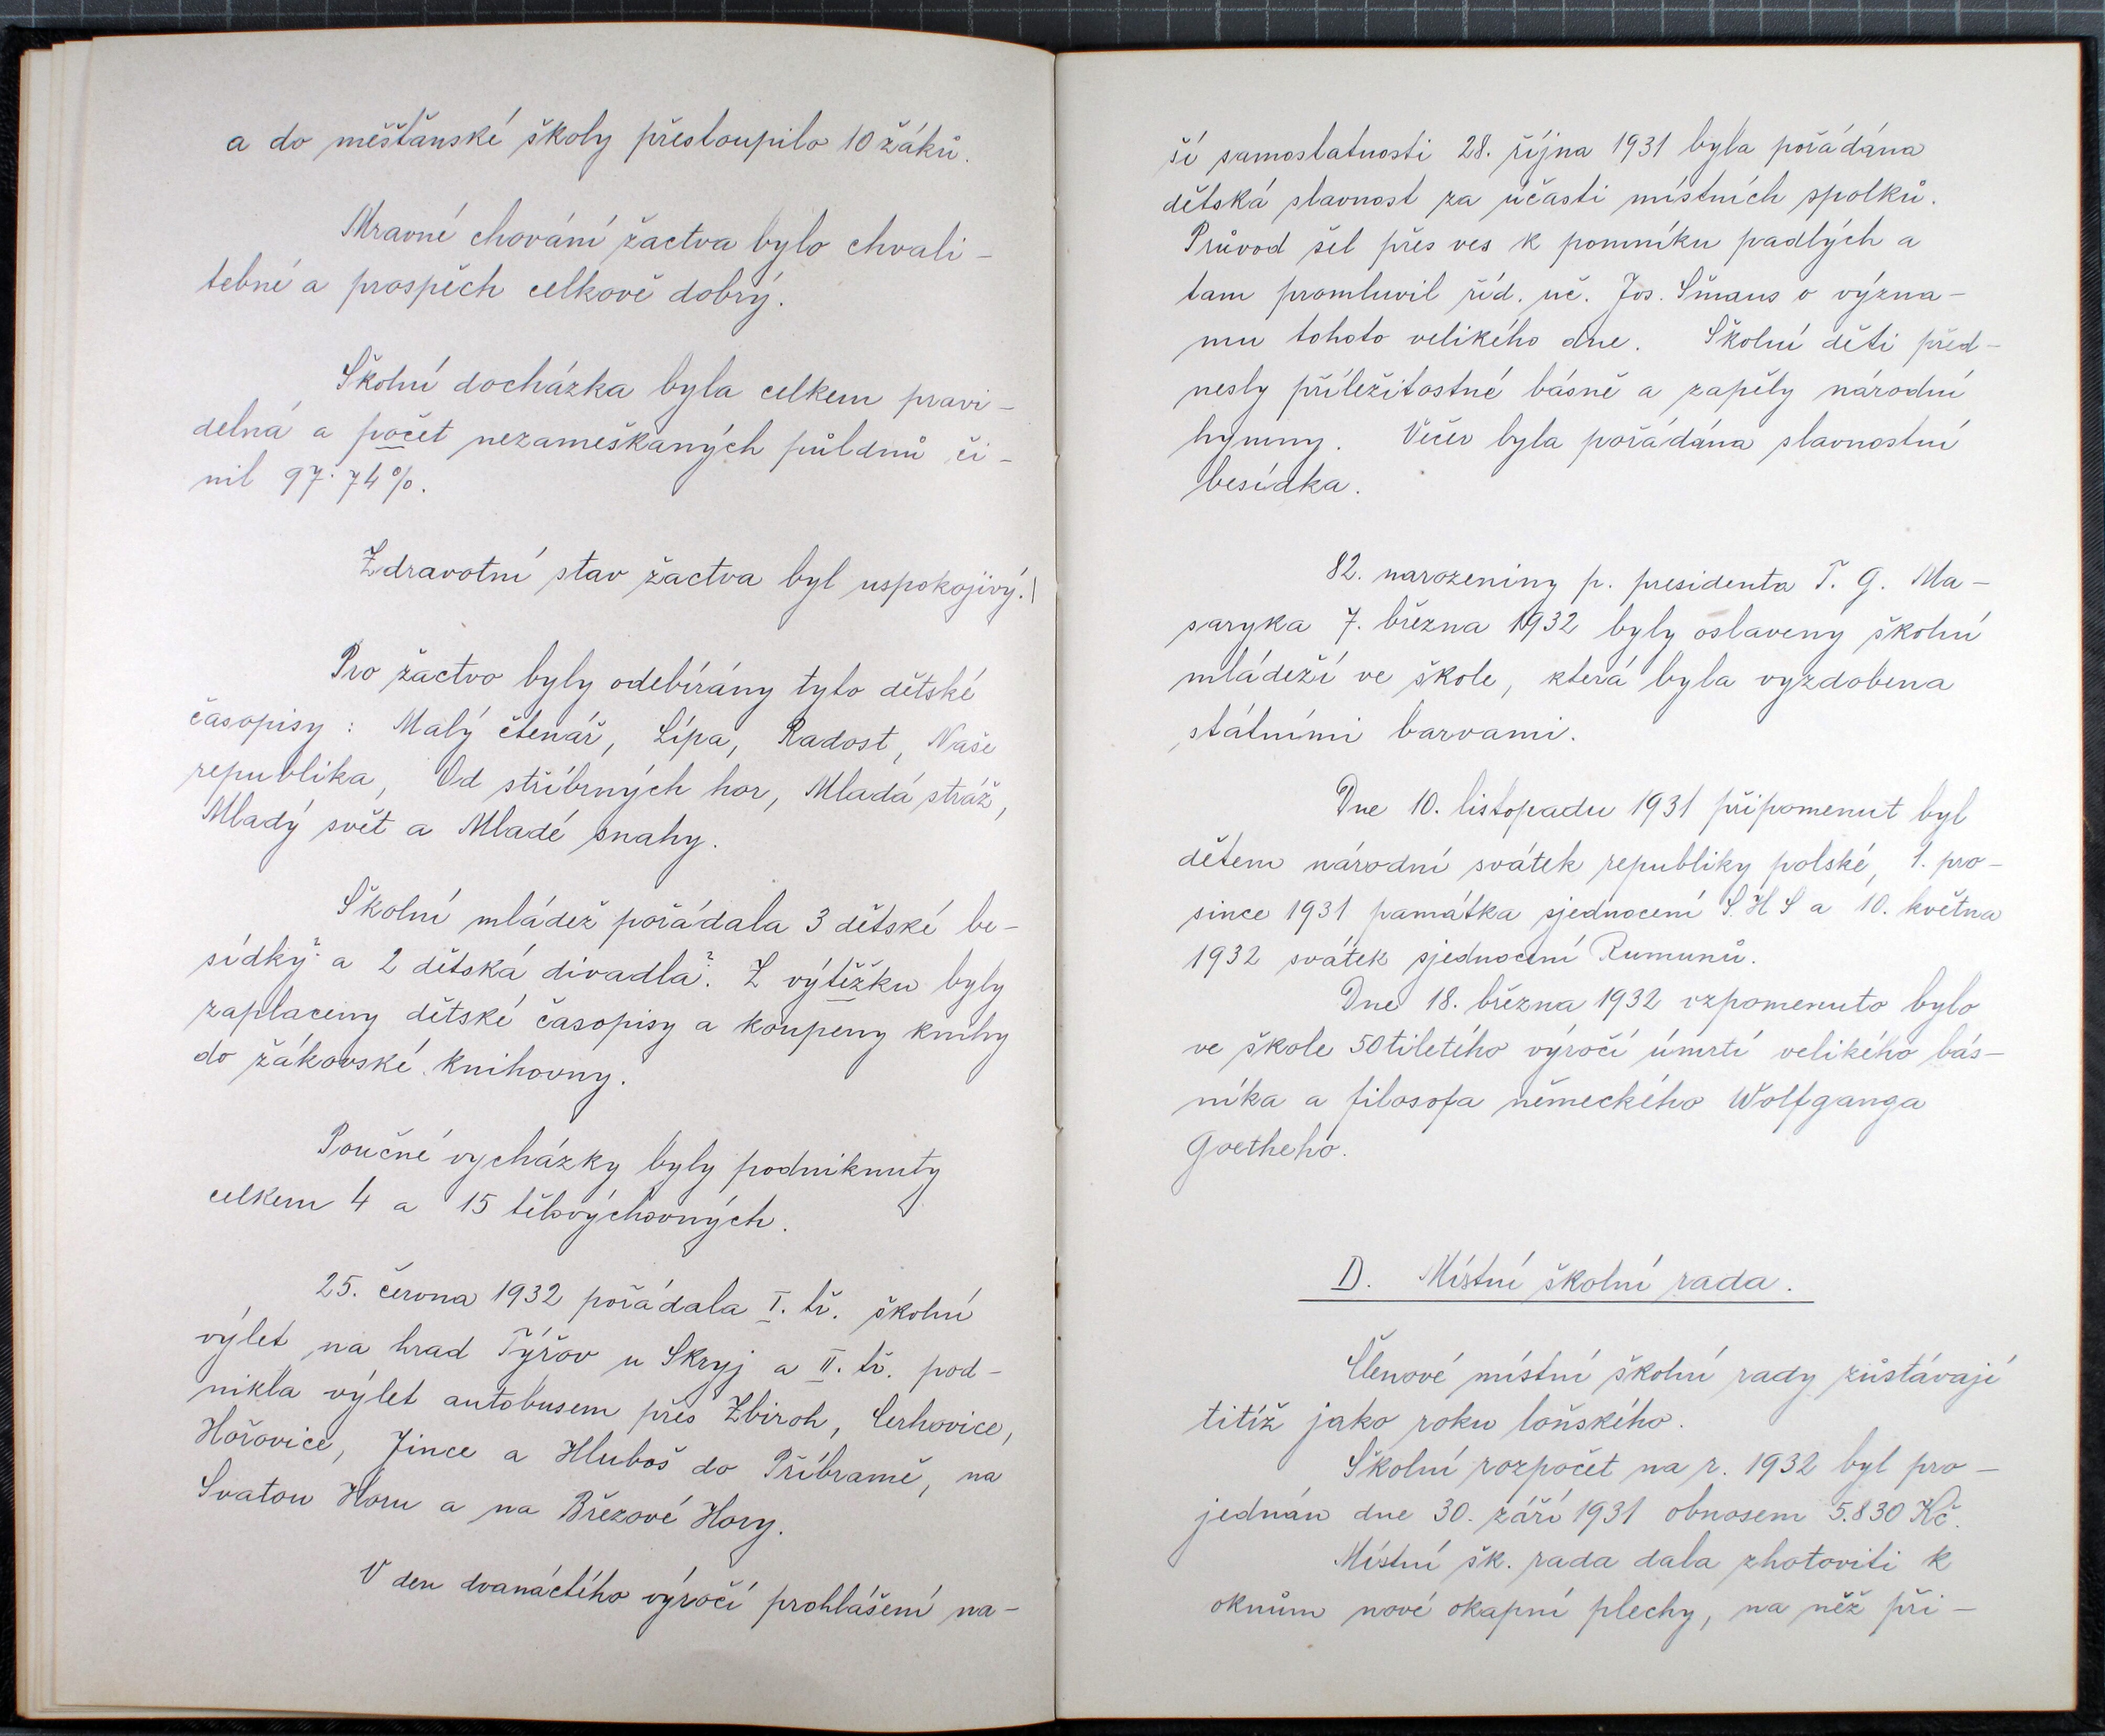 a do měšťanské školy přestoupilo 10 žáků.
Mravné chování žactva bylo chvali-
tebné a prospěch celkově dobrý.
Školní docházka byla celkem pravi-
delná a počet nezameškaných půldnů či-
nil 97.74%.
Zdravotní stav žactva byl uspokojivý.
Pro žactvo byly odebírány tyto dětské
časopisy: Malý čtenář, Lípa, Radost, Naše
republika, Od stříbrných hor, Mladá stráž,
Mladý svět a Mladé snahy.
Školní mládež pořádala 3 dětské be-
sídky? a 2 dětská divadla?. Z výtěžku byly
zaplaceny dětské časopisy a koupeny knihy
do žákovské knihovny.
Poučné vycházky byly podniknuty
celkem 4 a 15 tělovýchovných.
25. června 1932 pořádala I. tř. školní
výlet na hrad Týřov u Skryj a II. tř. pod-
nikla výlet autobusem přes Zbiroh, Cerhovice,
Hořovice, Jince a Hluboš do Příbramě, na
Svatou Horu a na Březové Hory.
V den dvanáctého výročí prohlášení na-
ší samostatnosti 28. října 1931 byla pořádána
dětská slavnost za účasti místních spolků.
Průvod šel přes ves k pomníku padlých a
tam promluvil říd. uč. Jos. Šmaus o význa-
mu tohoto velikého dne. Školní děti před-
nesly příležitostné básně a zapěly národní
hymny. Večer byla pořádána slavnostní
besídka.
82. narozeniny p. presidenta T. G. Ma-
saryka 7. března 1932 byly oslaveny školní
mládeží ve škole, která byla vyzdobena
státními barvami.
Dne 10. listopadu 1931 připomenut byl
dětem národní svátek republiky polské, 1. pro-
since 1931 památka sjednocení S.H S a 10. května
1932 svátek sjednocení Rumunů.
Dne 18. března 1932 vzpomenuto bylo
ve škole 50tiletého výročí úmrtí velikého bás-
níka a filosofa německého Wolfganga
Goetheho.
D. Místní školní rada.
Členové místní školní rady zůstávají
titíž jako roku loňského.
Školní rozpočet na r. 1932 byl pro-
jednán dne 30. září 1931 obnosem 5.830 Kč.
Místní šk. rada dala zhotoviti k
oknům nové okapní plechy, na něž při-